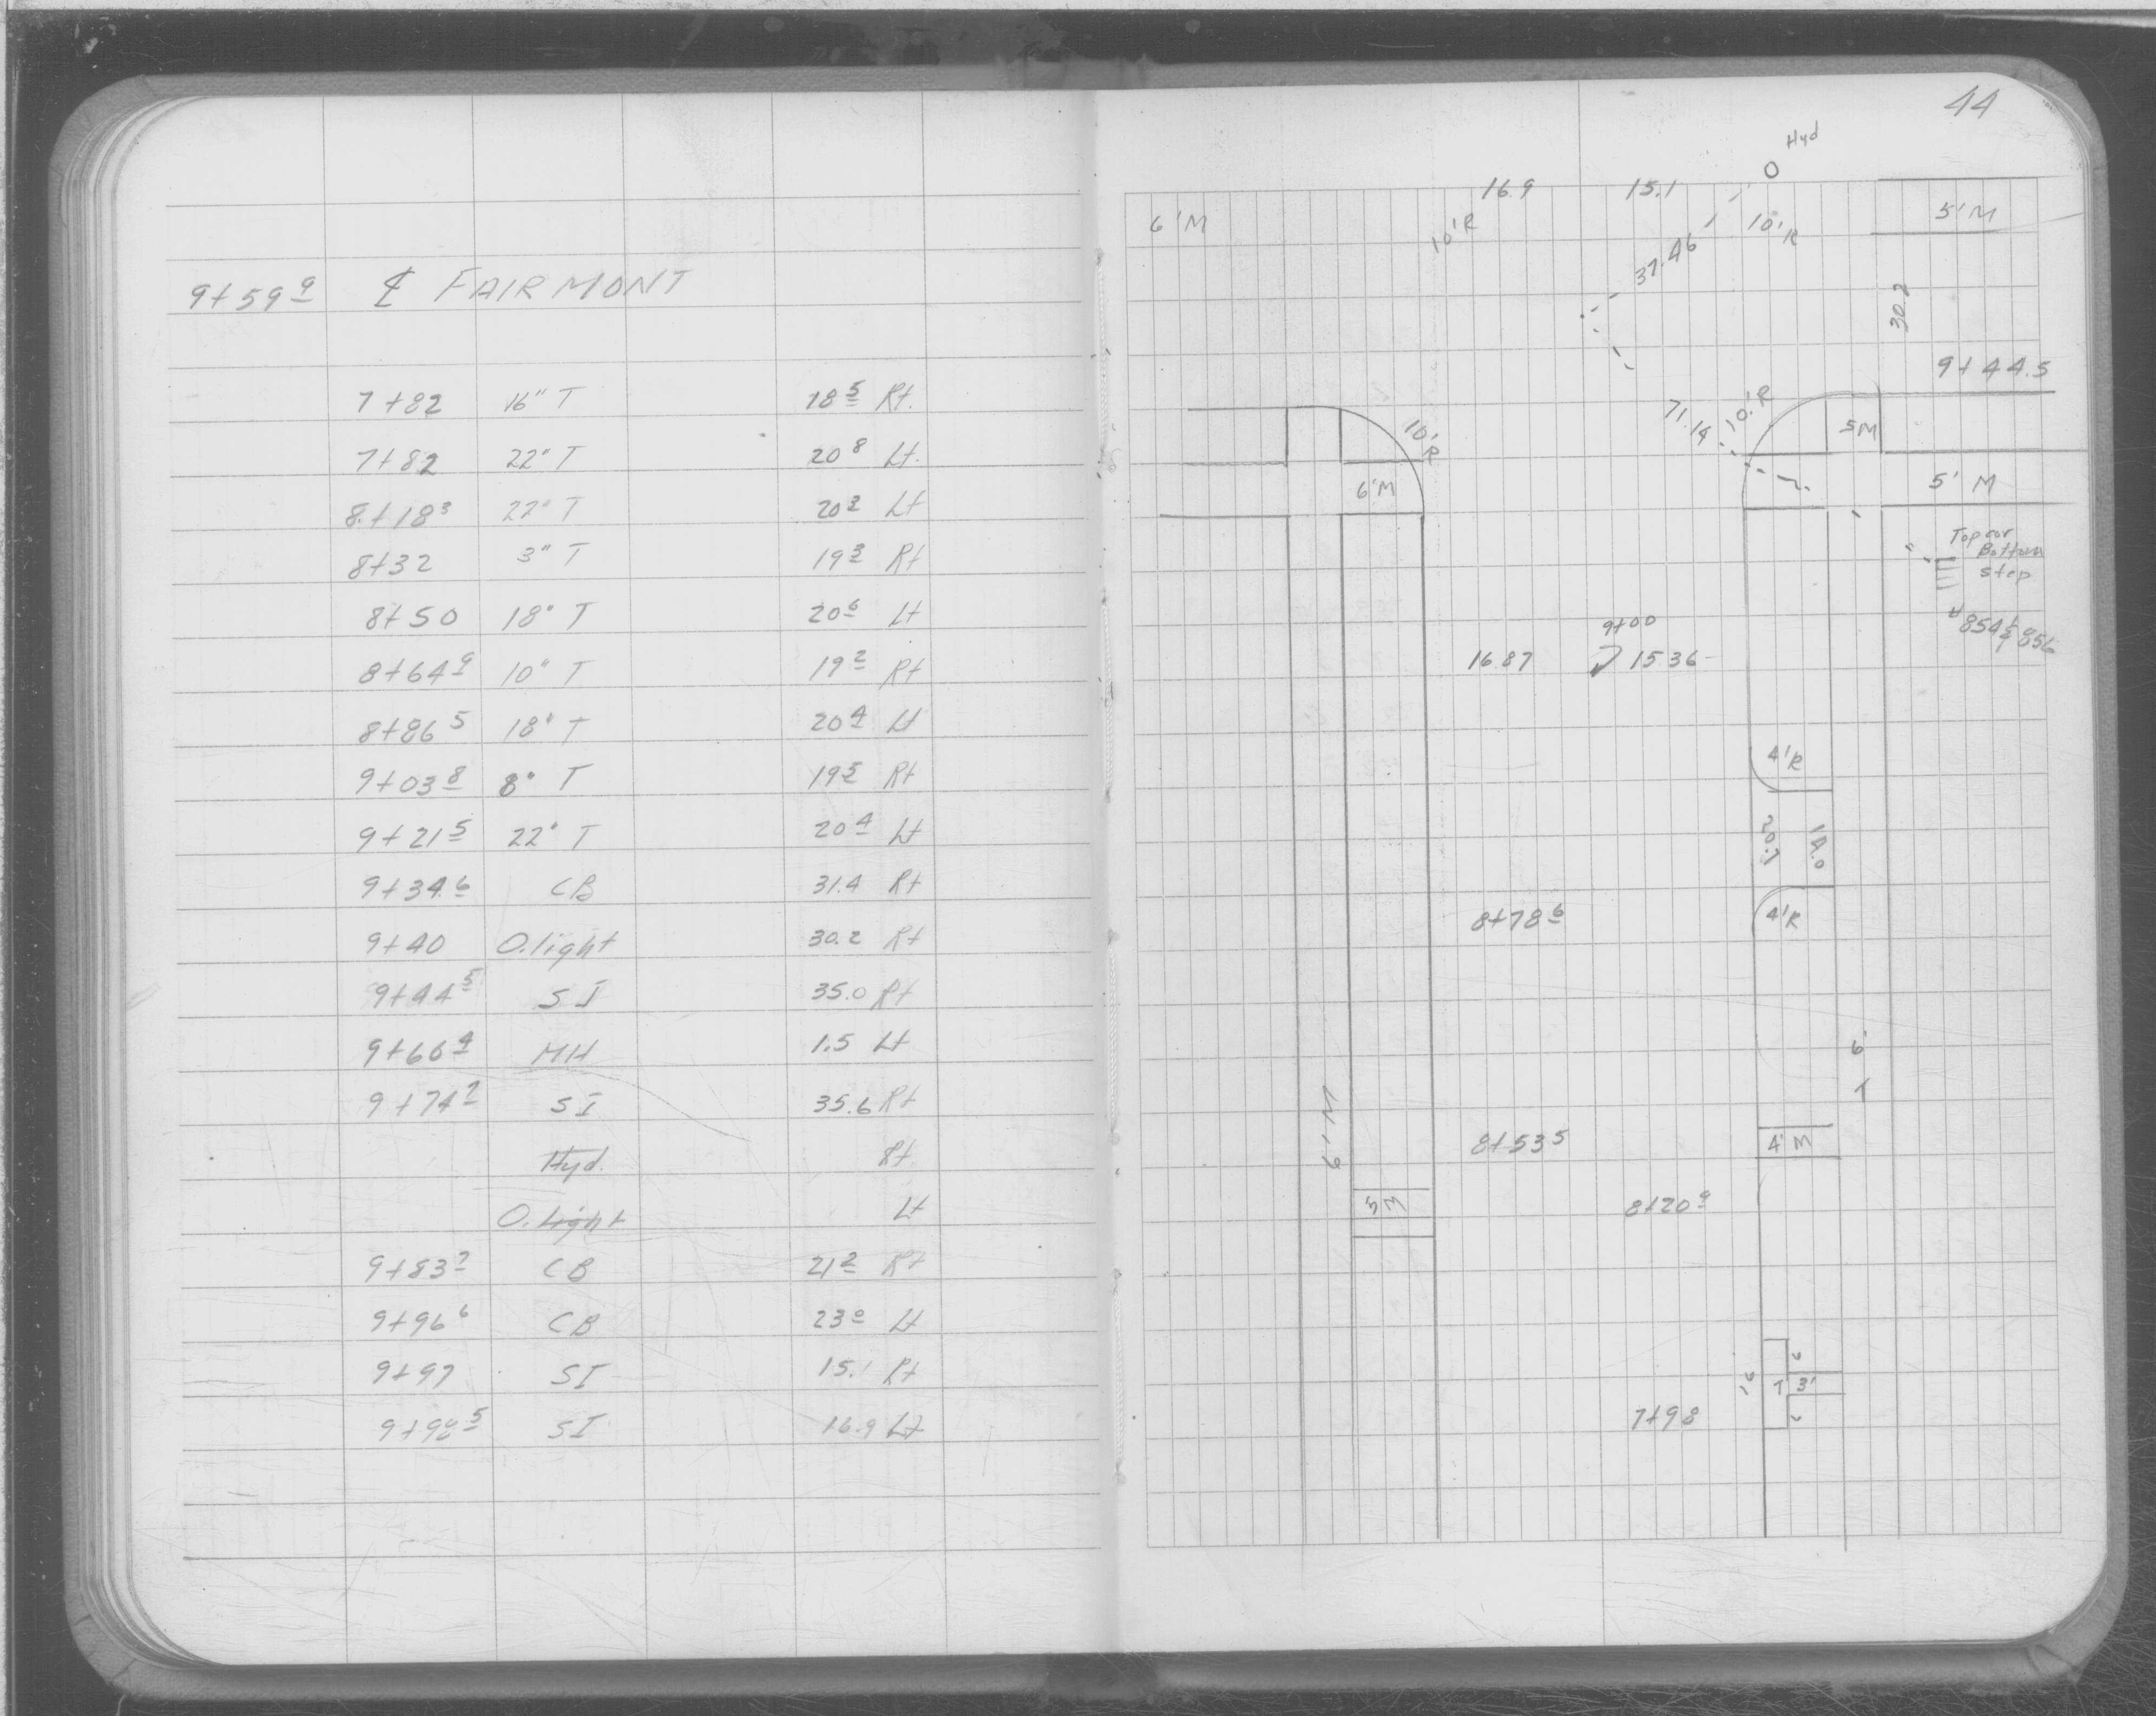 9+59 9 ℄ FAIRMONT
7+82 16" T 18 5 Rt.
7+82 22" T 20 8 Lt.
8+18 3 22" T 20 2 Lt
8+32 3" T 19 3 Rt
8+50 18" T 20 6 Lt
8+64 9 10" T 19 2 Rt
8+86 5 18" T 20 4 Lt
9+03 8 8" T 19 5 Rt
9+21 5 22" T 20 4 Lt
9+34.6 CB 31.4 Rt
9+40 O.light 30.2 Rt
9+44 5 SI 35.0 Rt
9+60 4 MH 1.5 Lt
9+74 2 SI 35.6 Rt
Hyd. Rt
O. Light Lt
9+83 7 CB 21 2 Rt
9+96 6 CB 23 0 Lt
9+97 SI 15.1 Rt
SI 16.9 Lt
44
Hyd
16.9 15.1
6'M 10'R 10'R 5'M
37.46
30.2
9+44.5
10'R 71.14 10'R 5M
6'M 5' M
Top cor
Bottom
step
# 854 & 856
9+00
16.87 15.36
4'R
20.1 14.0
8+78 6 4'R
6'
T
6'M
8+53 5 4'M
5'M 8+20 9
7 3'
7+98